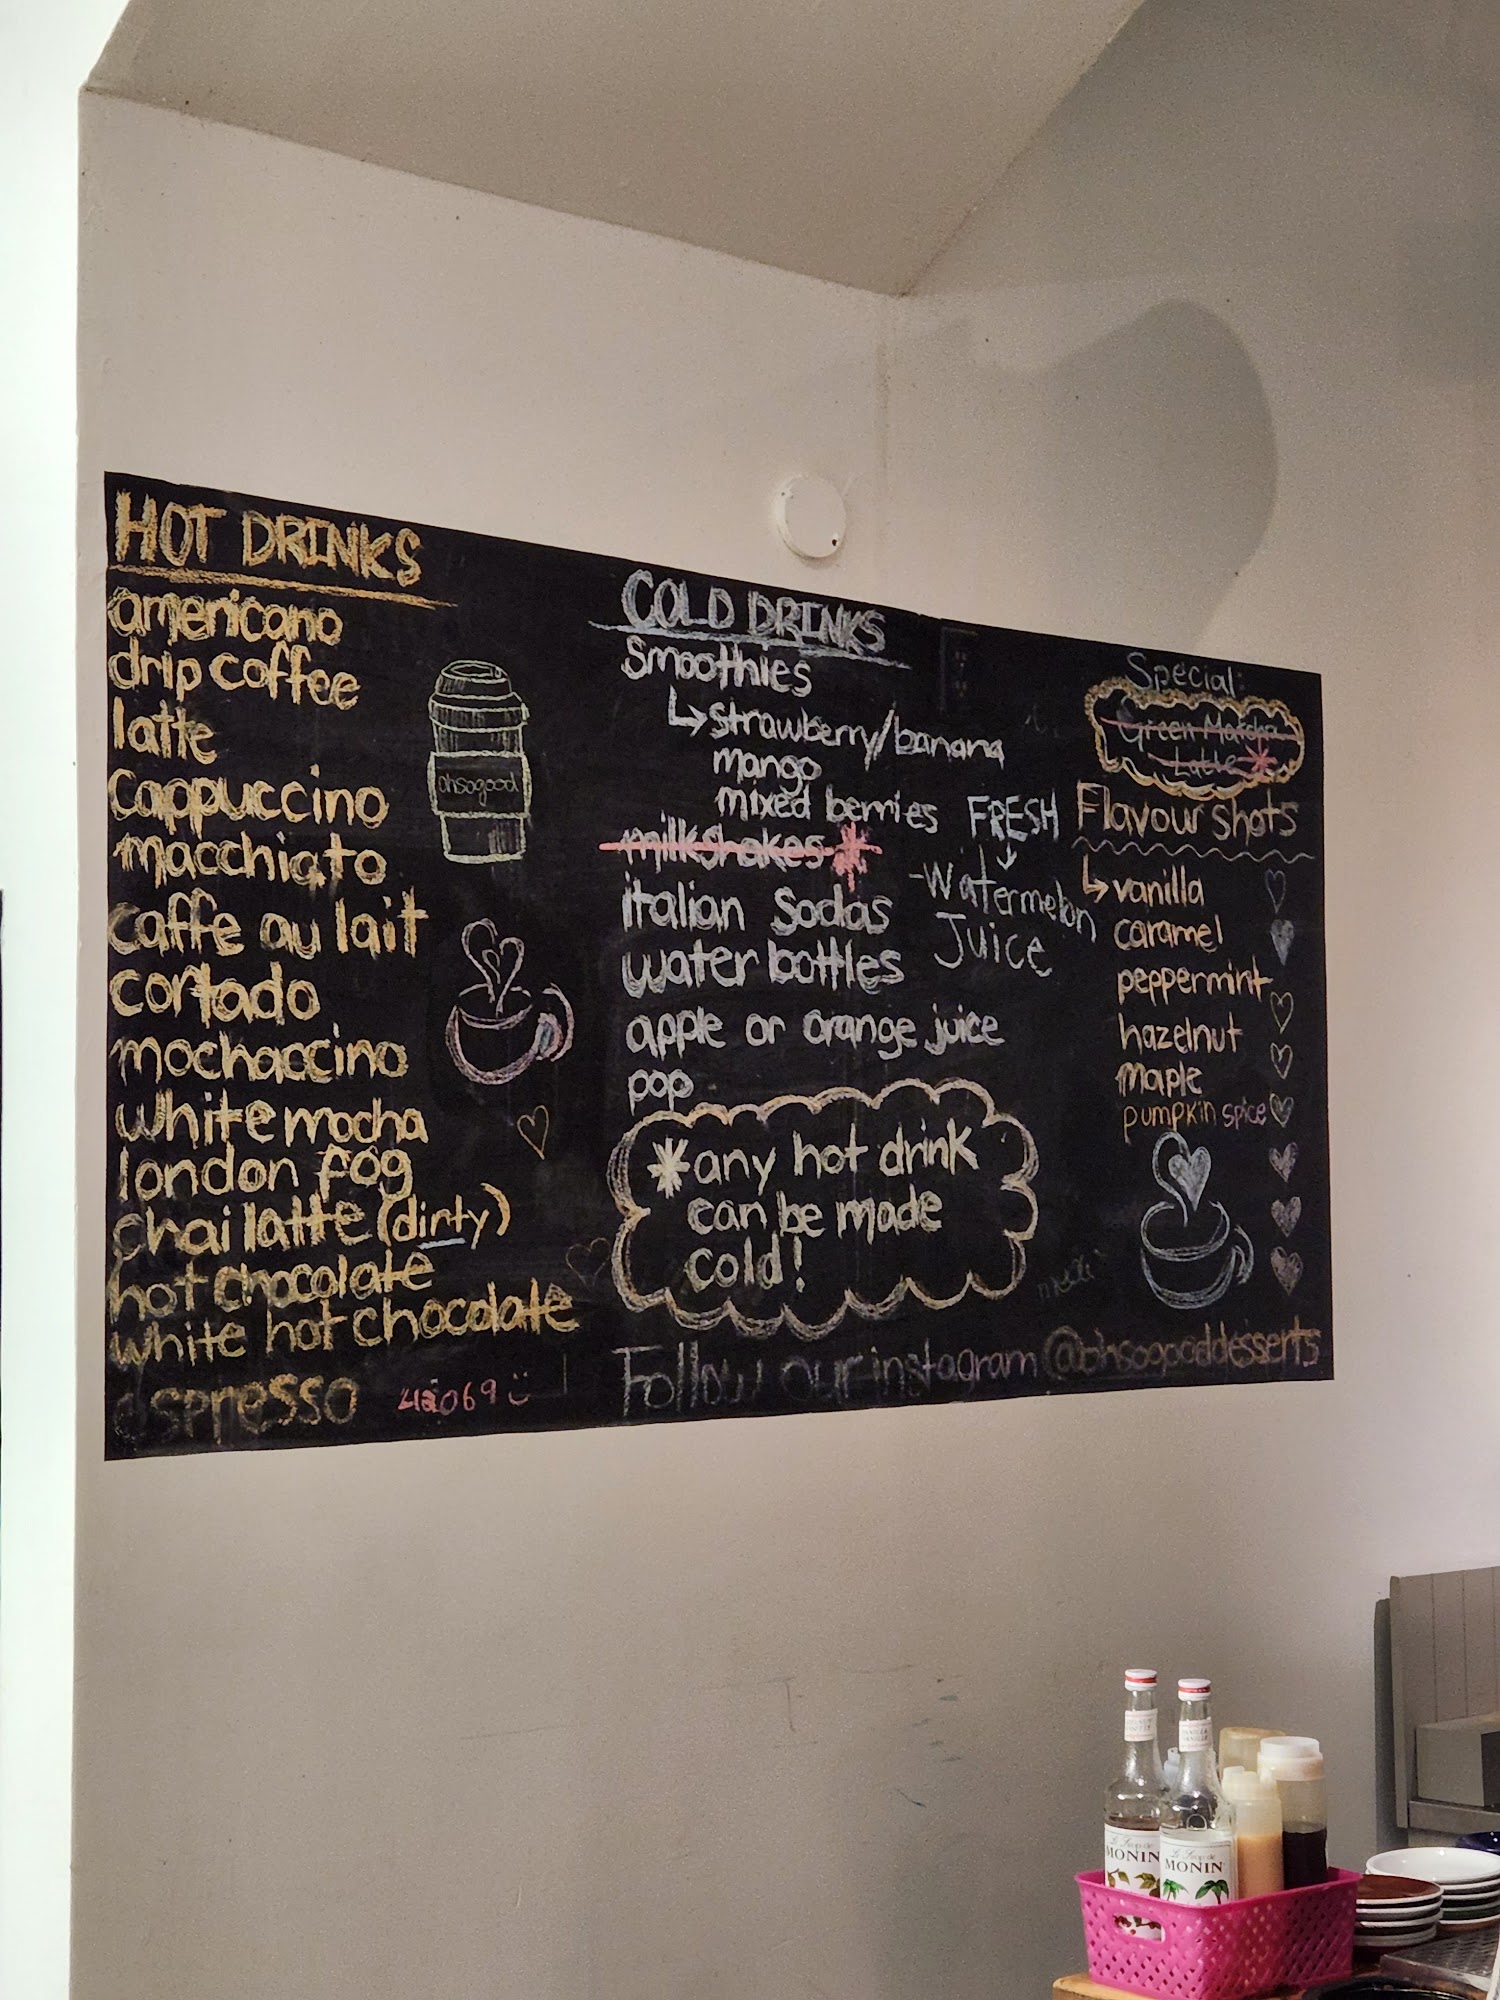 HOT DRINKS
americano
drip coffee
latte
Cappuccino
macchiato
caffe au lait
cortado
mochaccino
white mocha
london fog
chai latte (dirty)
hot chocolate
white hot chocolate
espresso
ohsogood
COLD DRINKS
Smoothies
strawberry/banana
mango
mixed berries
milkshakes *
italian Sodas
water bottles
apple or orange juice
pop
FRESH
-Watermelon
Juice
*any hot drink
can be made
cold!
Special:
Green Matcha
Latte *
Flavour shots
vanilla
caramel
peppermint
hazelnut
maple
pumpkin spice
Follow our instagram @ohsogooddesserts
MONIN
MONIN